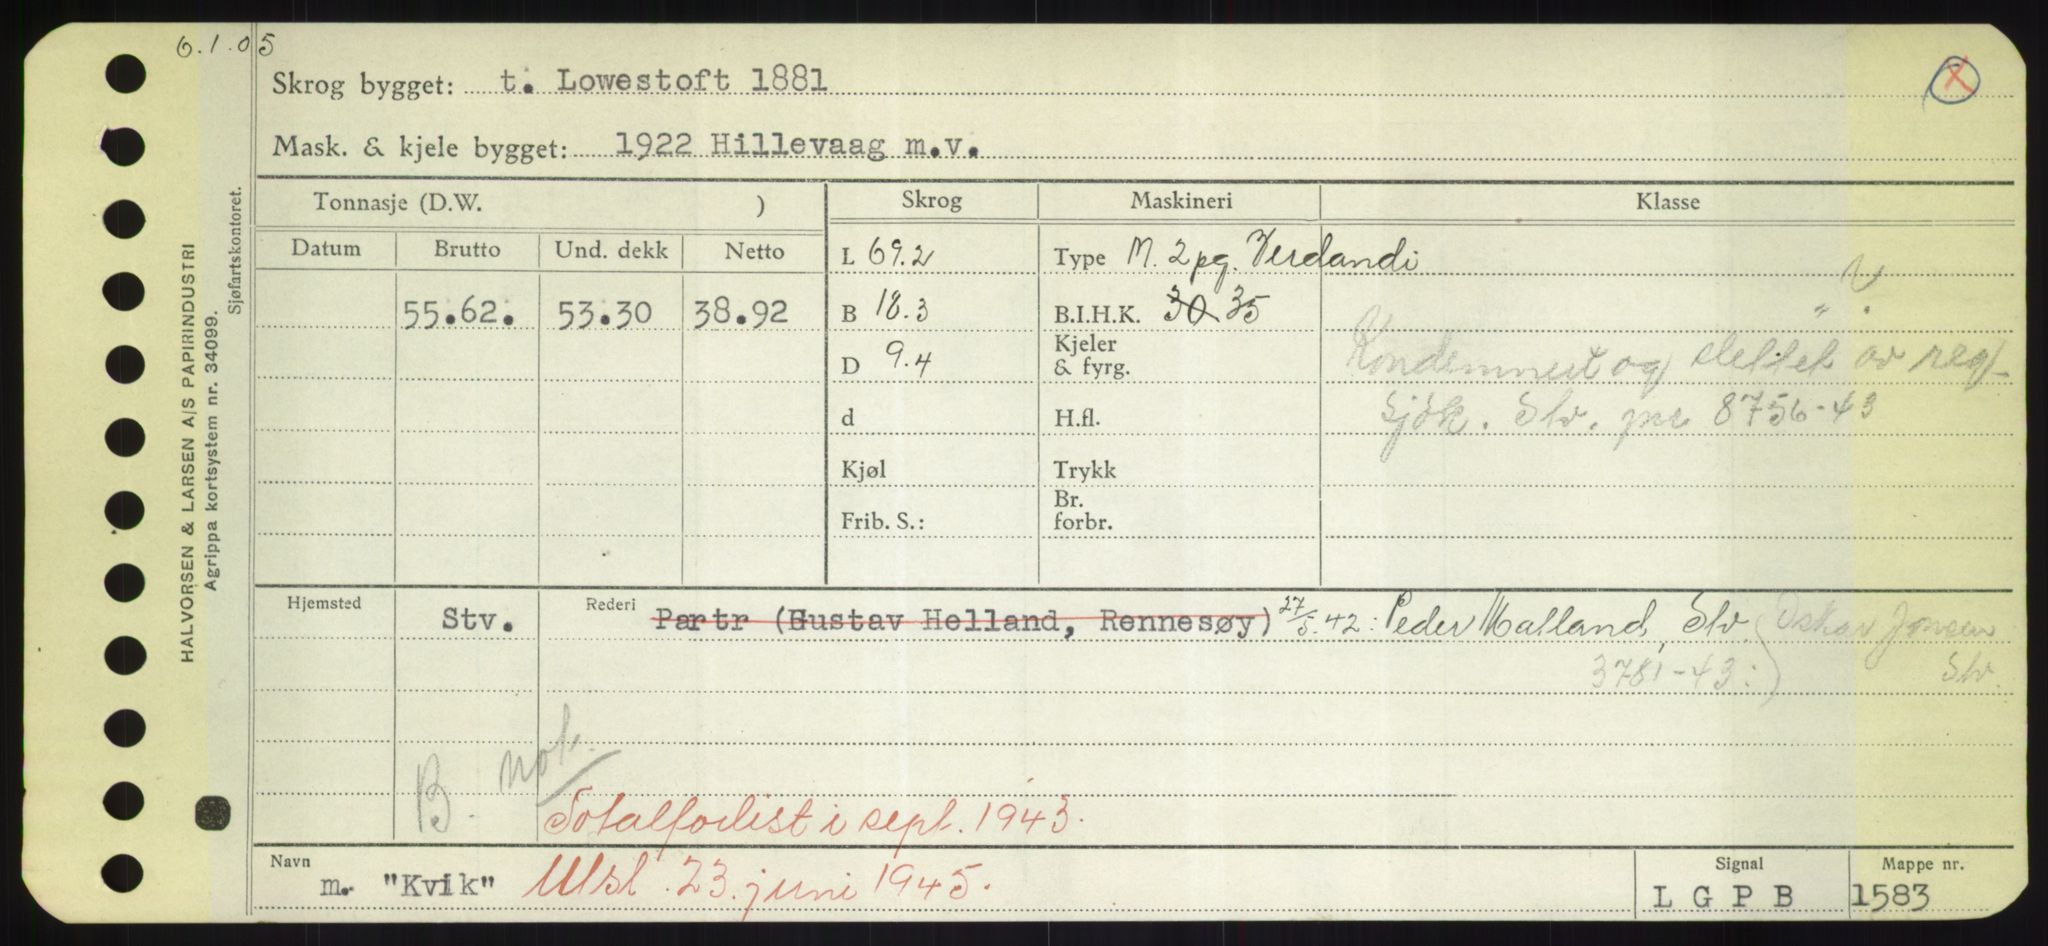 6.1.05
Skrog bygget: t. Lowestoft 1881
X
Mask. & kjele bygget: 1922 Hillevaag m.v.
HALVORSEN & LARSEN A/S PAPIRINDUSTRI
Agrippa kortsystem nr. 34099.
Sjøfartskontoret.
Tonnasje (D.W. ) Skrog Maskineri Klasse
Datum Brutto Und. dekk Netto L 69.2 Type M. 2 pg. Verdandi
55.62. 53.30 38.92 B 18.3 B.I.H.K. 30 35
D 9.4 Kjeler & fyrg.
Kondemnert og slettet av reg
d H.fl.
Sjøk. Stv. jnr 8756-43
Kjøl Trykk
Frib. S.: Br. forbr.
Hjemsted Stv. Rederi Partr (Gustav Helland, Rennesøy) 27/5.42: Peder Malland, Stv. Oskar Jonsen
3781-43:) Stv.
B. not.
Totalforlist i sept. 1943.
Navn m. "Kvik" Utsl. 23. juni 1945. Signal L G P B Mappe nr. 1583